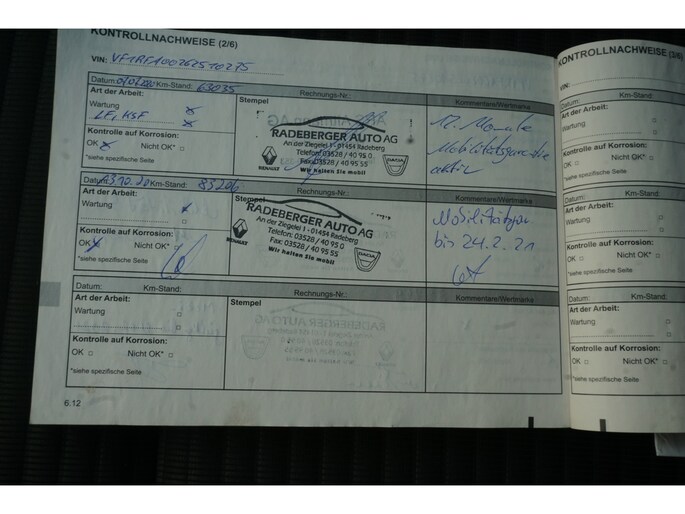 KONTROLLNACHWEISE (2/6)
VIN:
Datum: Km-Stand: 63035 Rechnungs-Nr.:
Art der Arbeit: Stempel Kommentare/Wertmarke
Wartung
Kontrolle auf Korrosion:
OK Nicht OK*
*siehe spezifische Seite
RADEBERGER AUTO AG
An der Ziegelei 1 - 01454 Radeberg
Telefon: 03528 / 40 95 0
Fax: 03528 / 40 95 55
Wir halten Sie mobil
RENAULT DACIA
12. Monate
Mobilitätsgarantie
aktiv
Datum: Km-Stand: Rechnungs-Nr.:
Art der Arbeit: Stempel Kommentare/Wertmarke
Wartung
Kontrolle auf Korrosion:
OK Nicht OK*
*siehe spezifische Seite
RADEBERGER AUTO AG
An der Ziegelei 1 - 01454 Radeberg
Telefon: 03528 / 40 95 0
Fax: 03528 / 40 95 55
Wir halten Sie mobil
RENAULT DACIA
bis 24.2.21
Datum: Km-Stand: Rechnungs-Nr.:
Art der Arbeit: Stempel Kommentare/Wertmarke
Wartung
Kontrolle auf Korrosion:
OK Nicht OK*
*siehe spezifische Seite
6.12
KONTROLLNACHWEISE (3/6)
VIN:
Datum: Km-Stand:
Art der Arbeit:
Wartung
Kontrolle auf Korrosion:
OK Nicht OK*
*siehe spezifische Seite
Datum: Km-Stand:
Art der Arbeit:
Wartung
Kontrolle auf Korrosion:
OK Nicht OK*
*siehe spezifische Seite
Datum: Km-Stand:
Art der Arbeit:
Wartung
Kontrolle auf Korrosion:
OK Nicht OK*
*siehe spezifische Seite